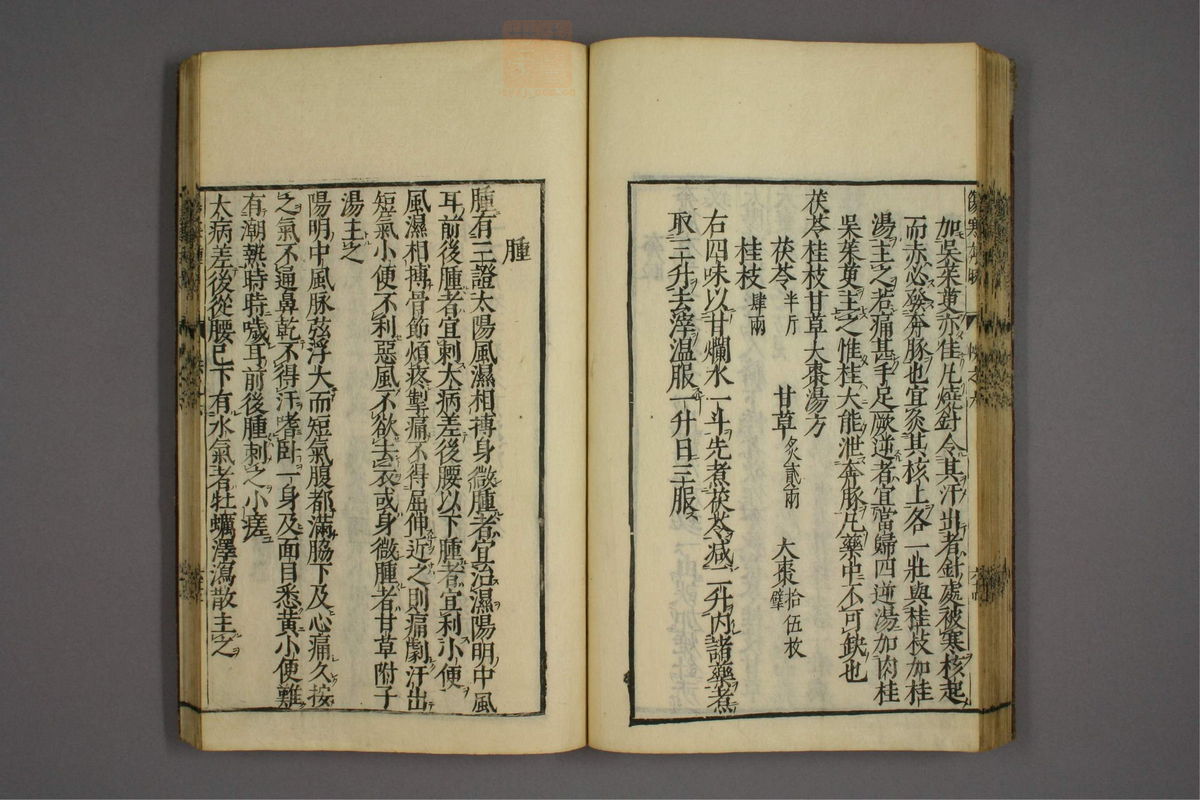 加吳茱萸亦佳凡燒針令其汗出者針處被寒核起
而赤必發奔豚也宜灸其核上各一壯與桂枝加桂
湯主之若痛甚手足厥逆者宜當歸四逆湯加肉桂
吳茱萸主之惟桂大能泄奔豚凡藥中不可缺也
茯苓桂枝甘草大棗湯方
茯苓半斤 甘草炙貳兩 大棗拾伍枚擘
桂枝肆兩
右四味以甘爛水一斗先煮茯苓減二升内諸藥煮
取三升去滓溫服一升日三服
腫
腫有三證太陽風濕相搏身微腫者宜治濕陽明中風
耳前後腫者宜刺大病差後腰以下腫者宜利小便
風濕相搏骨節煩疼掣痛不得屈伸近之則痛劇汗出
短氣小便不利惡風不欲去衣或身微腫者甘草附子
湯主之
陽明中風脉弦浮大而短氣腹都滿脇下及心痛久按
之氣不通鼻乾不得汗嗜卧一身及面目悉黃小便難
有潮熱時時噦耳前後腫刺之小瘥
大病差後從腰已下有水氣者牡蠣澤瀉散主之